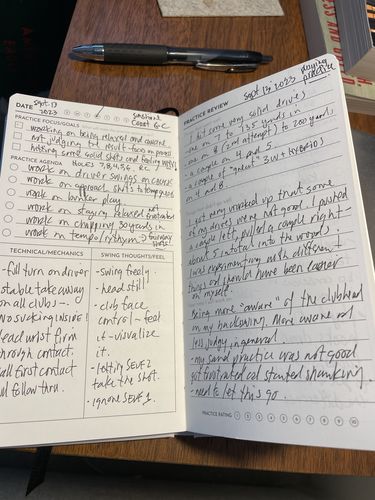 DATE Sept. 13
2023
Sunshine
Coast G.C
PRACTICE FOCUS/GOALS
working on being relaxed and aware.
not judging the result - focus on process
hitting some solid shots and feeling
PRACTICE AGENDA HOLES 7, 8, 4, 5, 6
work on driver swings mechanics
work on approach shots to
work on bunker play
work on staying relaxed not frustrated
work on chipping 30 yards in
work on tempo/rhythm
TECHNICAL/MECHANICS
- full turn on driver
stable takeaway
on all clubs -
No sucking INSIDE!
lead wrist firm
through contact.
ball first contact
full follow thru.
SWING THOUGHTS/FEEL
- Swing freely.
- head still
- club face
control - feel
it - visualize
it.
- letting SELF 2
take the shot.
- ignore SELF 1.
Sept 13, 2023 playing
practice
PRACTICE REVIEW
- I hit some very solid drives
one on 7 to 135 yards in
one on 8 (2nd attempt) to 200 yards,
a couple on 4 and 5
- a couple of "great" 3W + HYBRID
on 4 and 8
- I got mad worked up that some
of my drives were not good I pushed
a couple left, pulled a couple right -
about 5 in total into the woods.
I was experimenting with different
things and should have been easier
on myself.
Being more "aware" of the clubhead
on my backswing. More aware and
less judging in general.
- my sand practice was not good
got frustrated and started shanking.
- need to let this go.
PRACTICE RATING 1 2 3 4 5 6 7 8 9 10